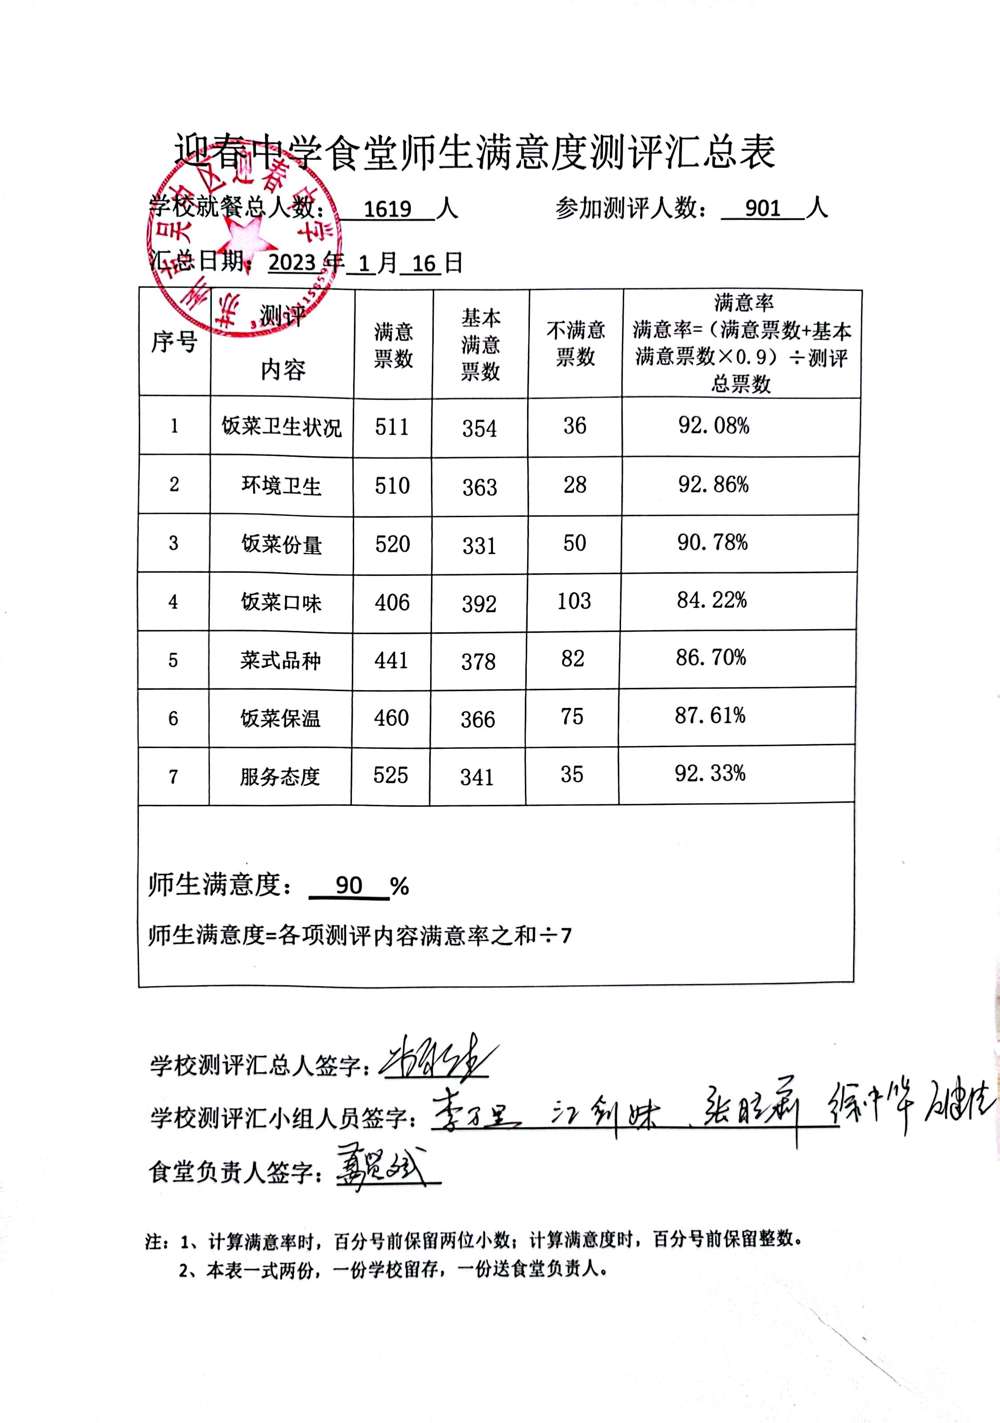 迎春中学食堂师生满意度测评汇总表
学校就餐总人数： 1619 人 参加测评人数： 901 人
汇总日期：2023 年 1 月 16 日
苏州市吴中区迎春中学
序号 测评内容 满意票数 基本满意票数 不满意票数 满意率 满意率=（满意票数+基本满意票数×0.9）÷测评总票数
1 饭菜卫生状况 511 354 36 92.08%
2 环境卫生 510 363 28 92.86%
3 饭菜份量 520 331 50 90.78%
4 饭菜口味 406 392 103 84.22%
5 菜式品种 441 378 82 86.70%
6 饭菜保温 460 366 75 87.61%
7 服务态度 525 341 35 92.33%
师生满意度： 90 %
师生满意度=各项测评内容满意率之和÷7
学校测评汇总人签字：
学校测评汇小组人员签字：李万里 江剑妹
食堂负责人签字：
注：1、计算满意率时，百分号前保留两位小数；计算满意度时，百分号前保留整数。
2、本表一式两份，一份学校留存，一份送食堂负责人。